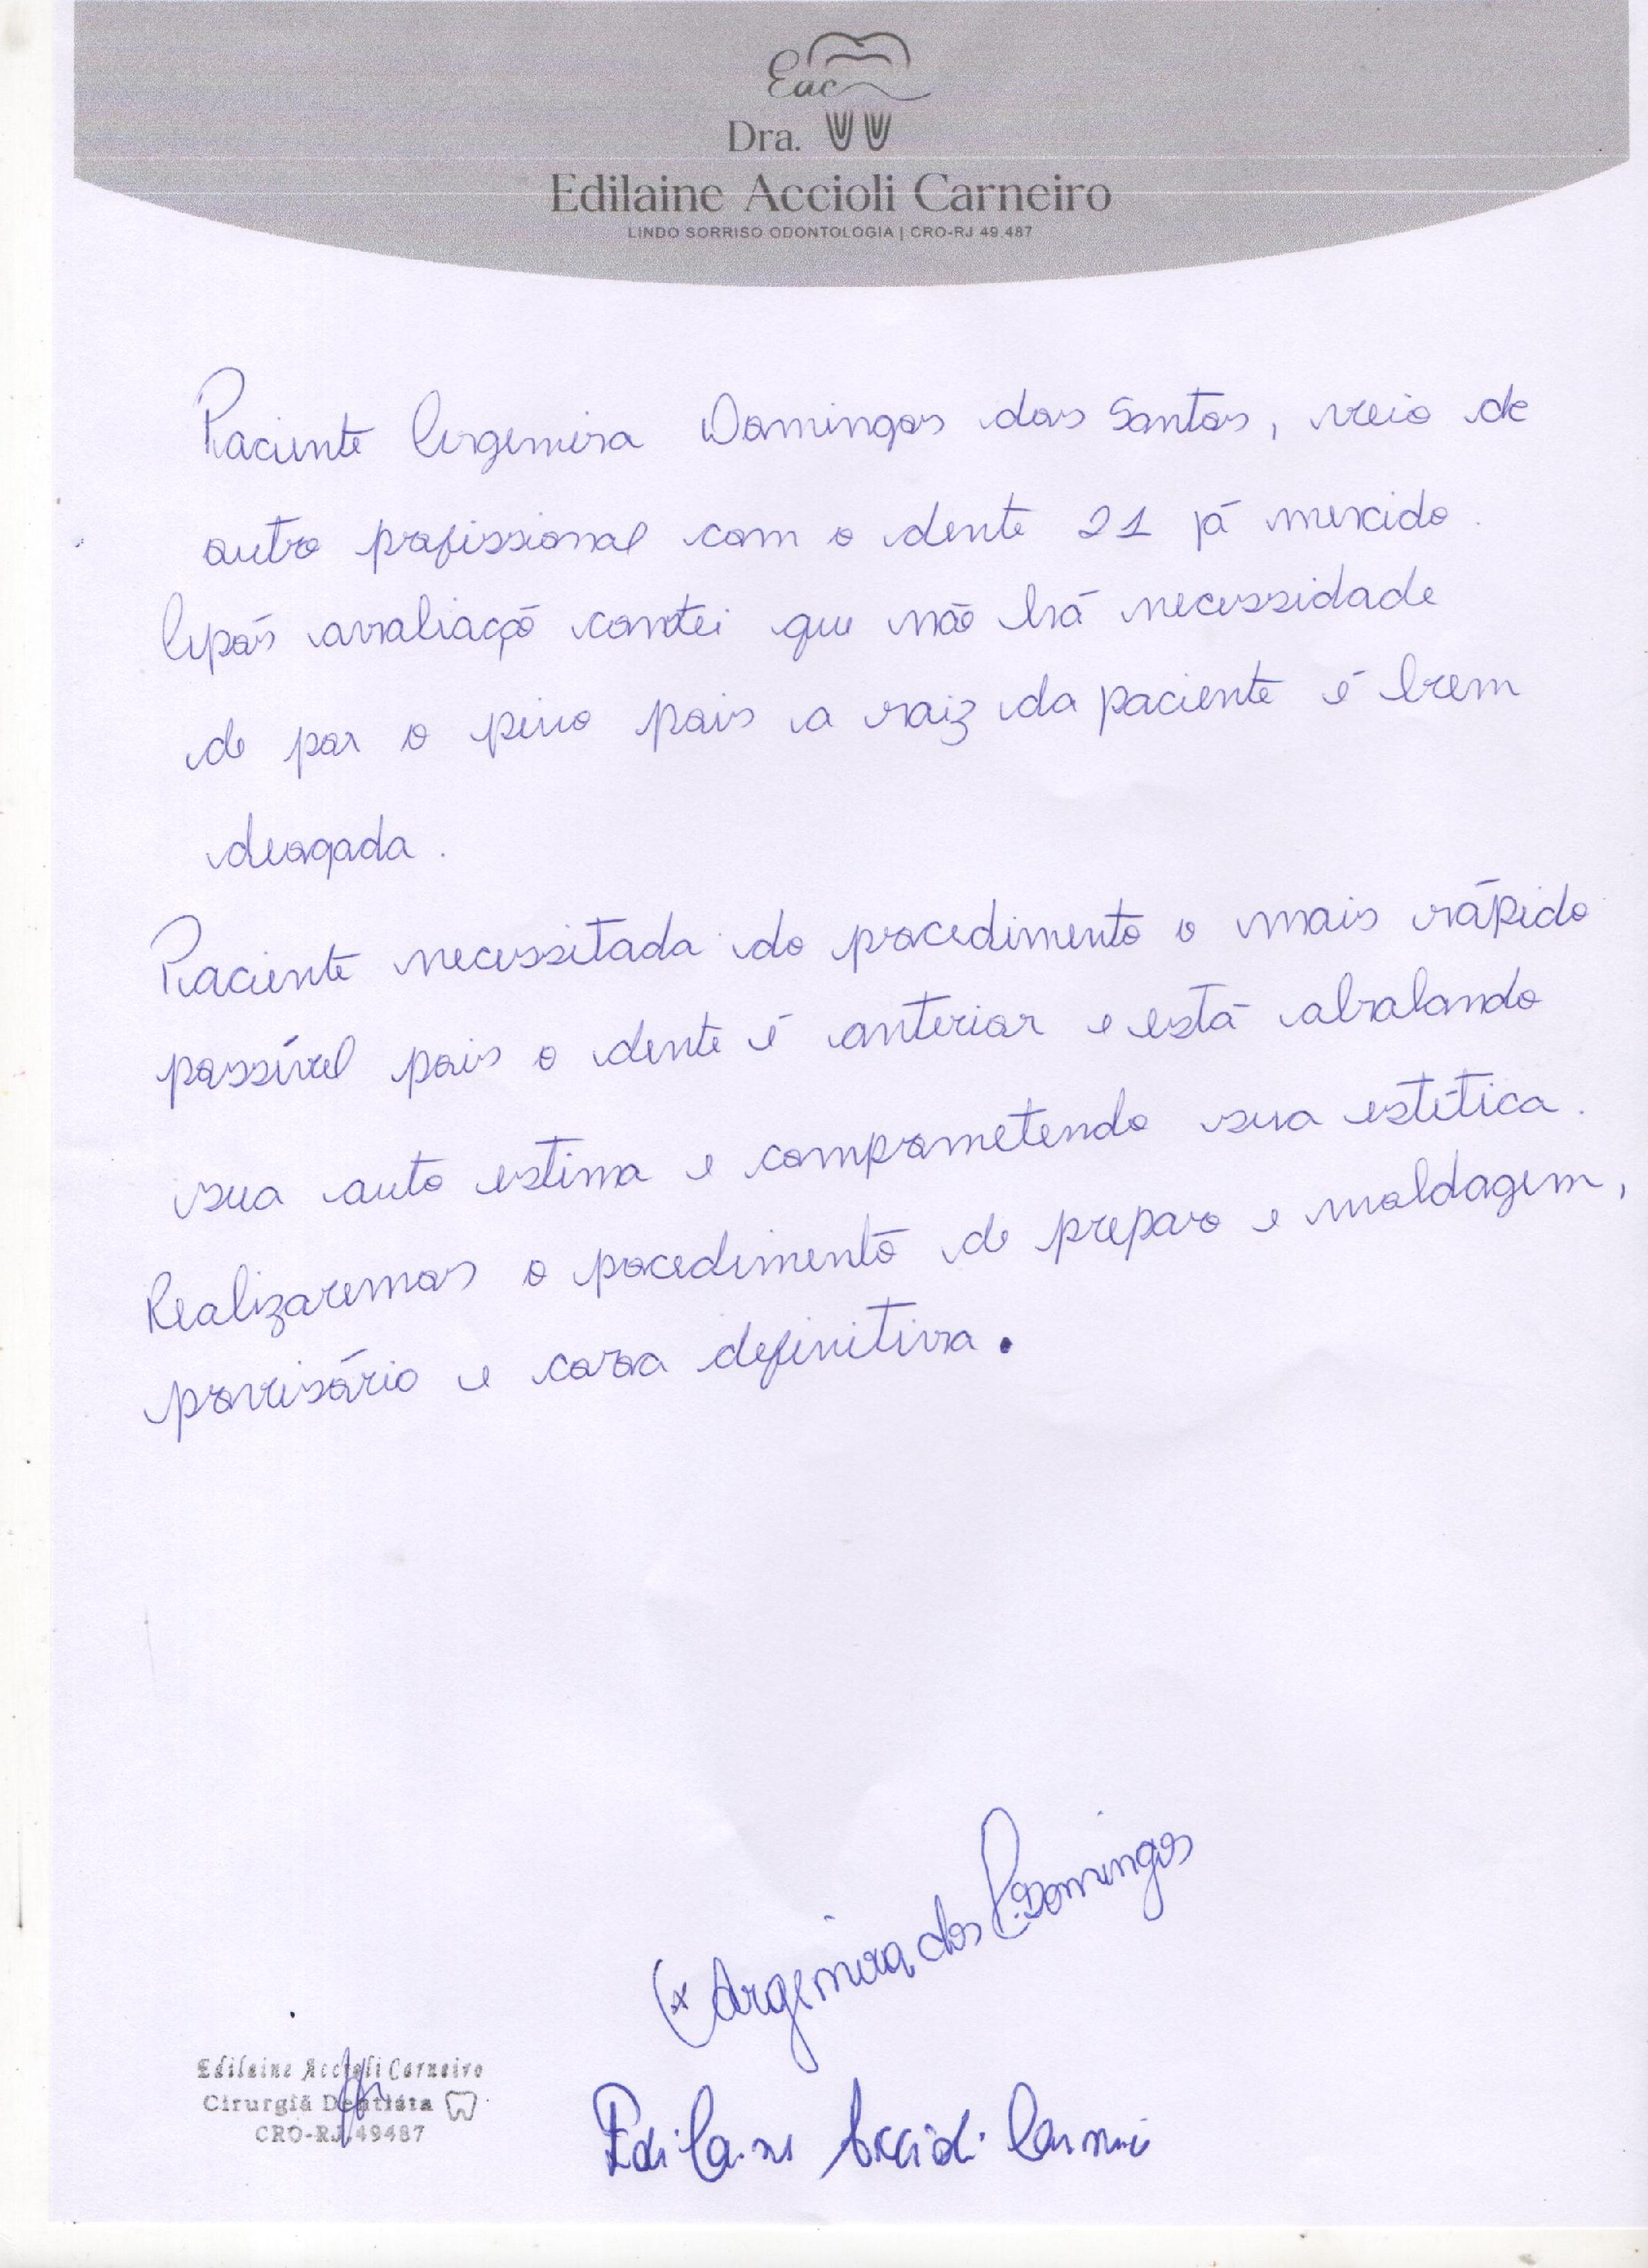 Eac
Dra.
Edilaine Accioli Carneiro
LINDO SORRISO ODONTOLOGIA | CRO-RJ 49.487
Paciente Argemira Domingos dos Santos, veio de
outro profissional com o dente 21 já mexido.
Após avaliaçõ contei que não há necessidade
de por o pino pois a raiz da paciente é bem
desgada.
Paciente necessitada do procedimento o mais rápido
possível pois o dente é anterior e está abalando
sua auto estima e comprometendo sua estética.
Realizaremos o pocedimento de preparo e moldagem,
provisório e coroa definitiva.
(x Argemira dos S. Domingos
Edilaine Accioli Carneiro
Edilaine Accioli Carneiro
Cirurgiã Dentista
CRO-RJ 49487